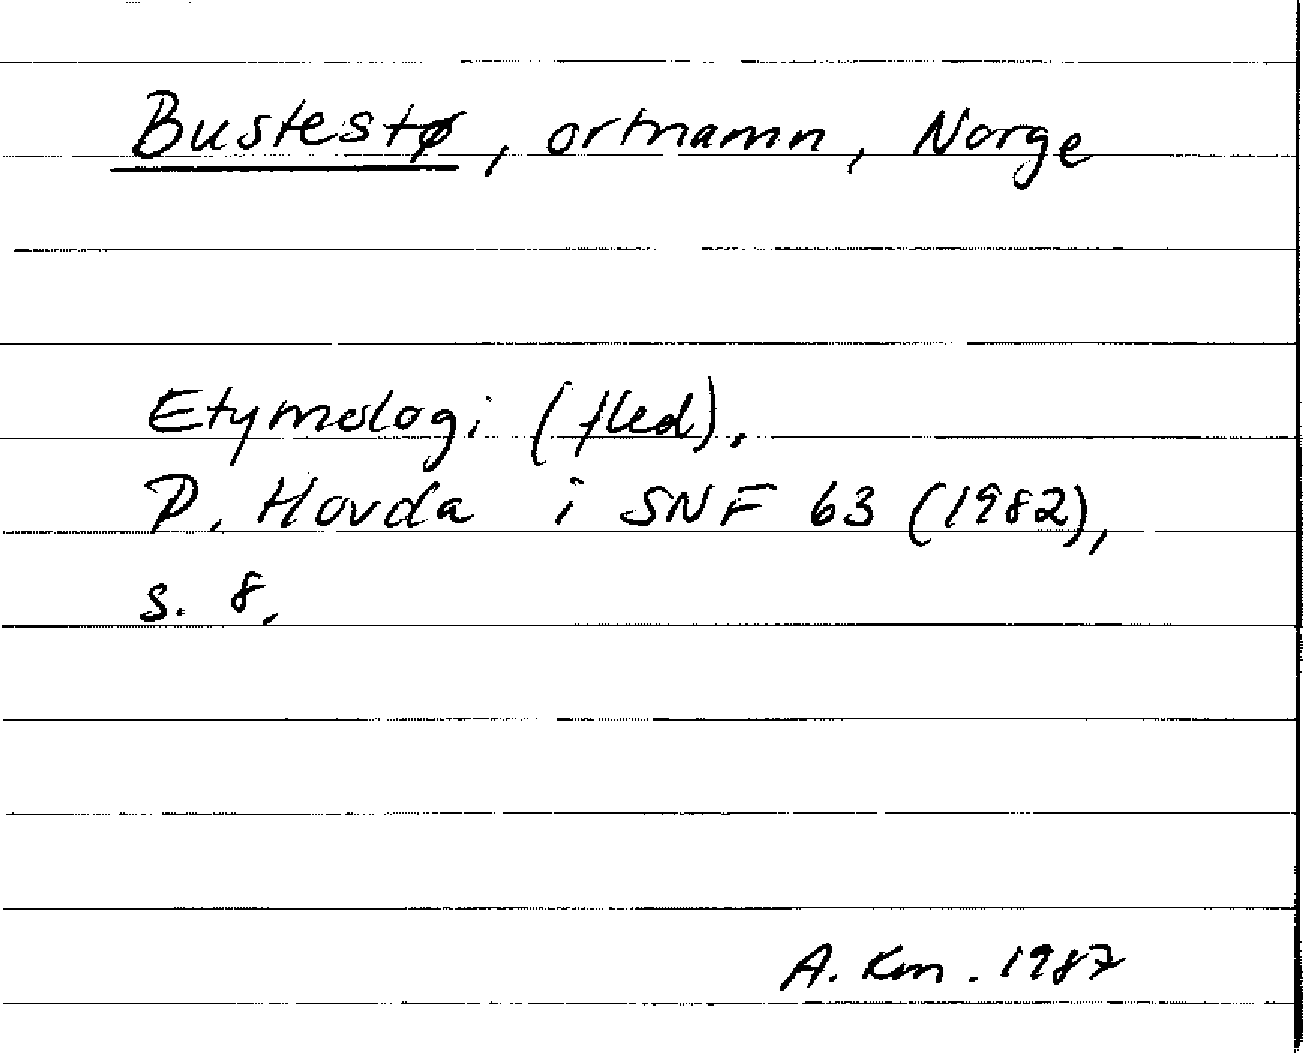 Bustestø, ortnamn, Norge
Etymologi (fled).
P. Hovda i SNF 63 (1982),
s. 8.
A. Km. 1987